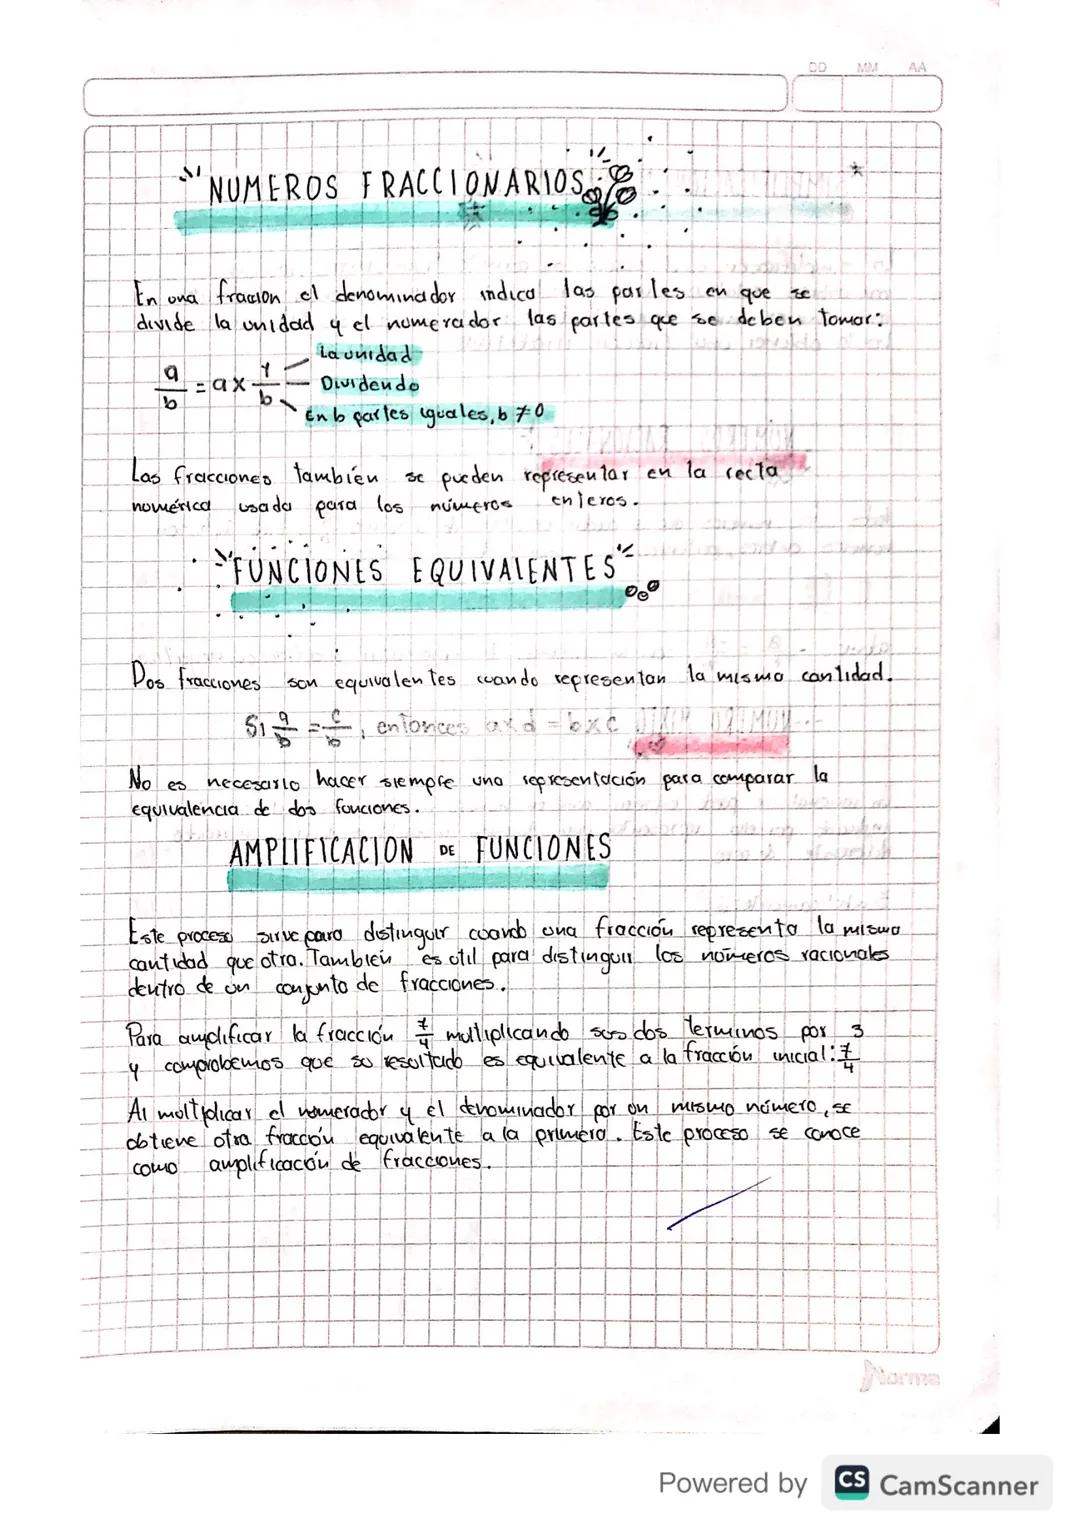 DD MM AA
"NUMEROS FRACCIONARIOS"
En una fracción el denominador indica las partes en que se
divide la unidad y el numerador las partes que se deben tomar:
a/b = a x 1/b
La unidad
Dividendo
En b partes iguales, b ≠ 0
Las fracciones también se pueden representar en la recta
numérica usada para los números enteros.
"FUNCIONES EQUIVALENTES"
Dos fracciones son equivalentes cuando representan la misma cantidad.
Si a/b = c/b, entonces axd = bxc
No es necesario hacer siempre una representación para comparar la
equivalencia de dos founciones.
AMPLIFICACION DE FUNCIONES
Este proceso sirve para distinguir cuando una fracción representa la misma
cantidad que otra. También es util para distinguir los números racionales
dentro de un conjunto de fracciones.
Para amplificar la fracción 7/4 multiplicando sus dos terminos por 3
y comprobemos que su resultado es equivalente a la fracción inicial: 7/4
Al multiplicar el numerador y el denominador por un mismo número, se
obtiene otra fracción equivalente a la primera. Este proceso se conoce
como amplificación de fracciones.
Norma
Powered by CS CamScanner